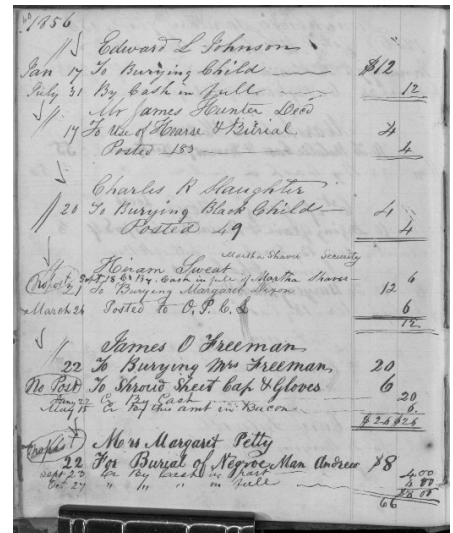 1856
Edward L Johnson
Jan 17 To Burying Child $12
July 31 By Cash in full 12
Mr James Hunter Decd
17 To Use of Hearse & Burial 4
Posted 183 4
Charles R Slaughter
20 To Burying Black Child 4
Posted 49 4
Martha Shaver Security
Hiram Sweat
Sept 18 By Cash in full of Martha Shaver 6
21 To Burying Margaret Dixon 12
March 24 Posted to O. P. C. L 6
12
James O Freeman
22 To Burying Mrs Freeman 20
No Post To Shroud Sheet Cap & Gloves 6
Jany 22 Cr By Cash 20
May 15 Cr By this amt in Bacon 6
$26 $26
Mrs Margaret Petty
22 For Burial of Negroe Man Andrew $8
Sept 23 Cr By Cash in part 4.00
Oct 27 " " " in full 4.00
$8.00
66